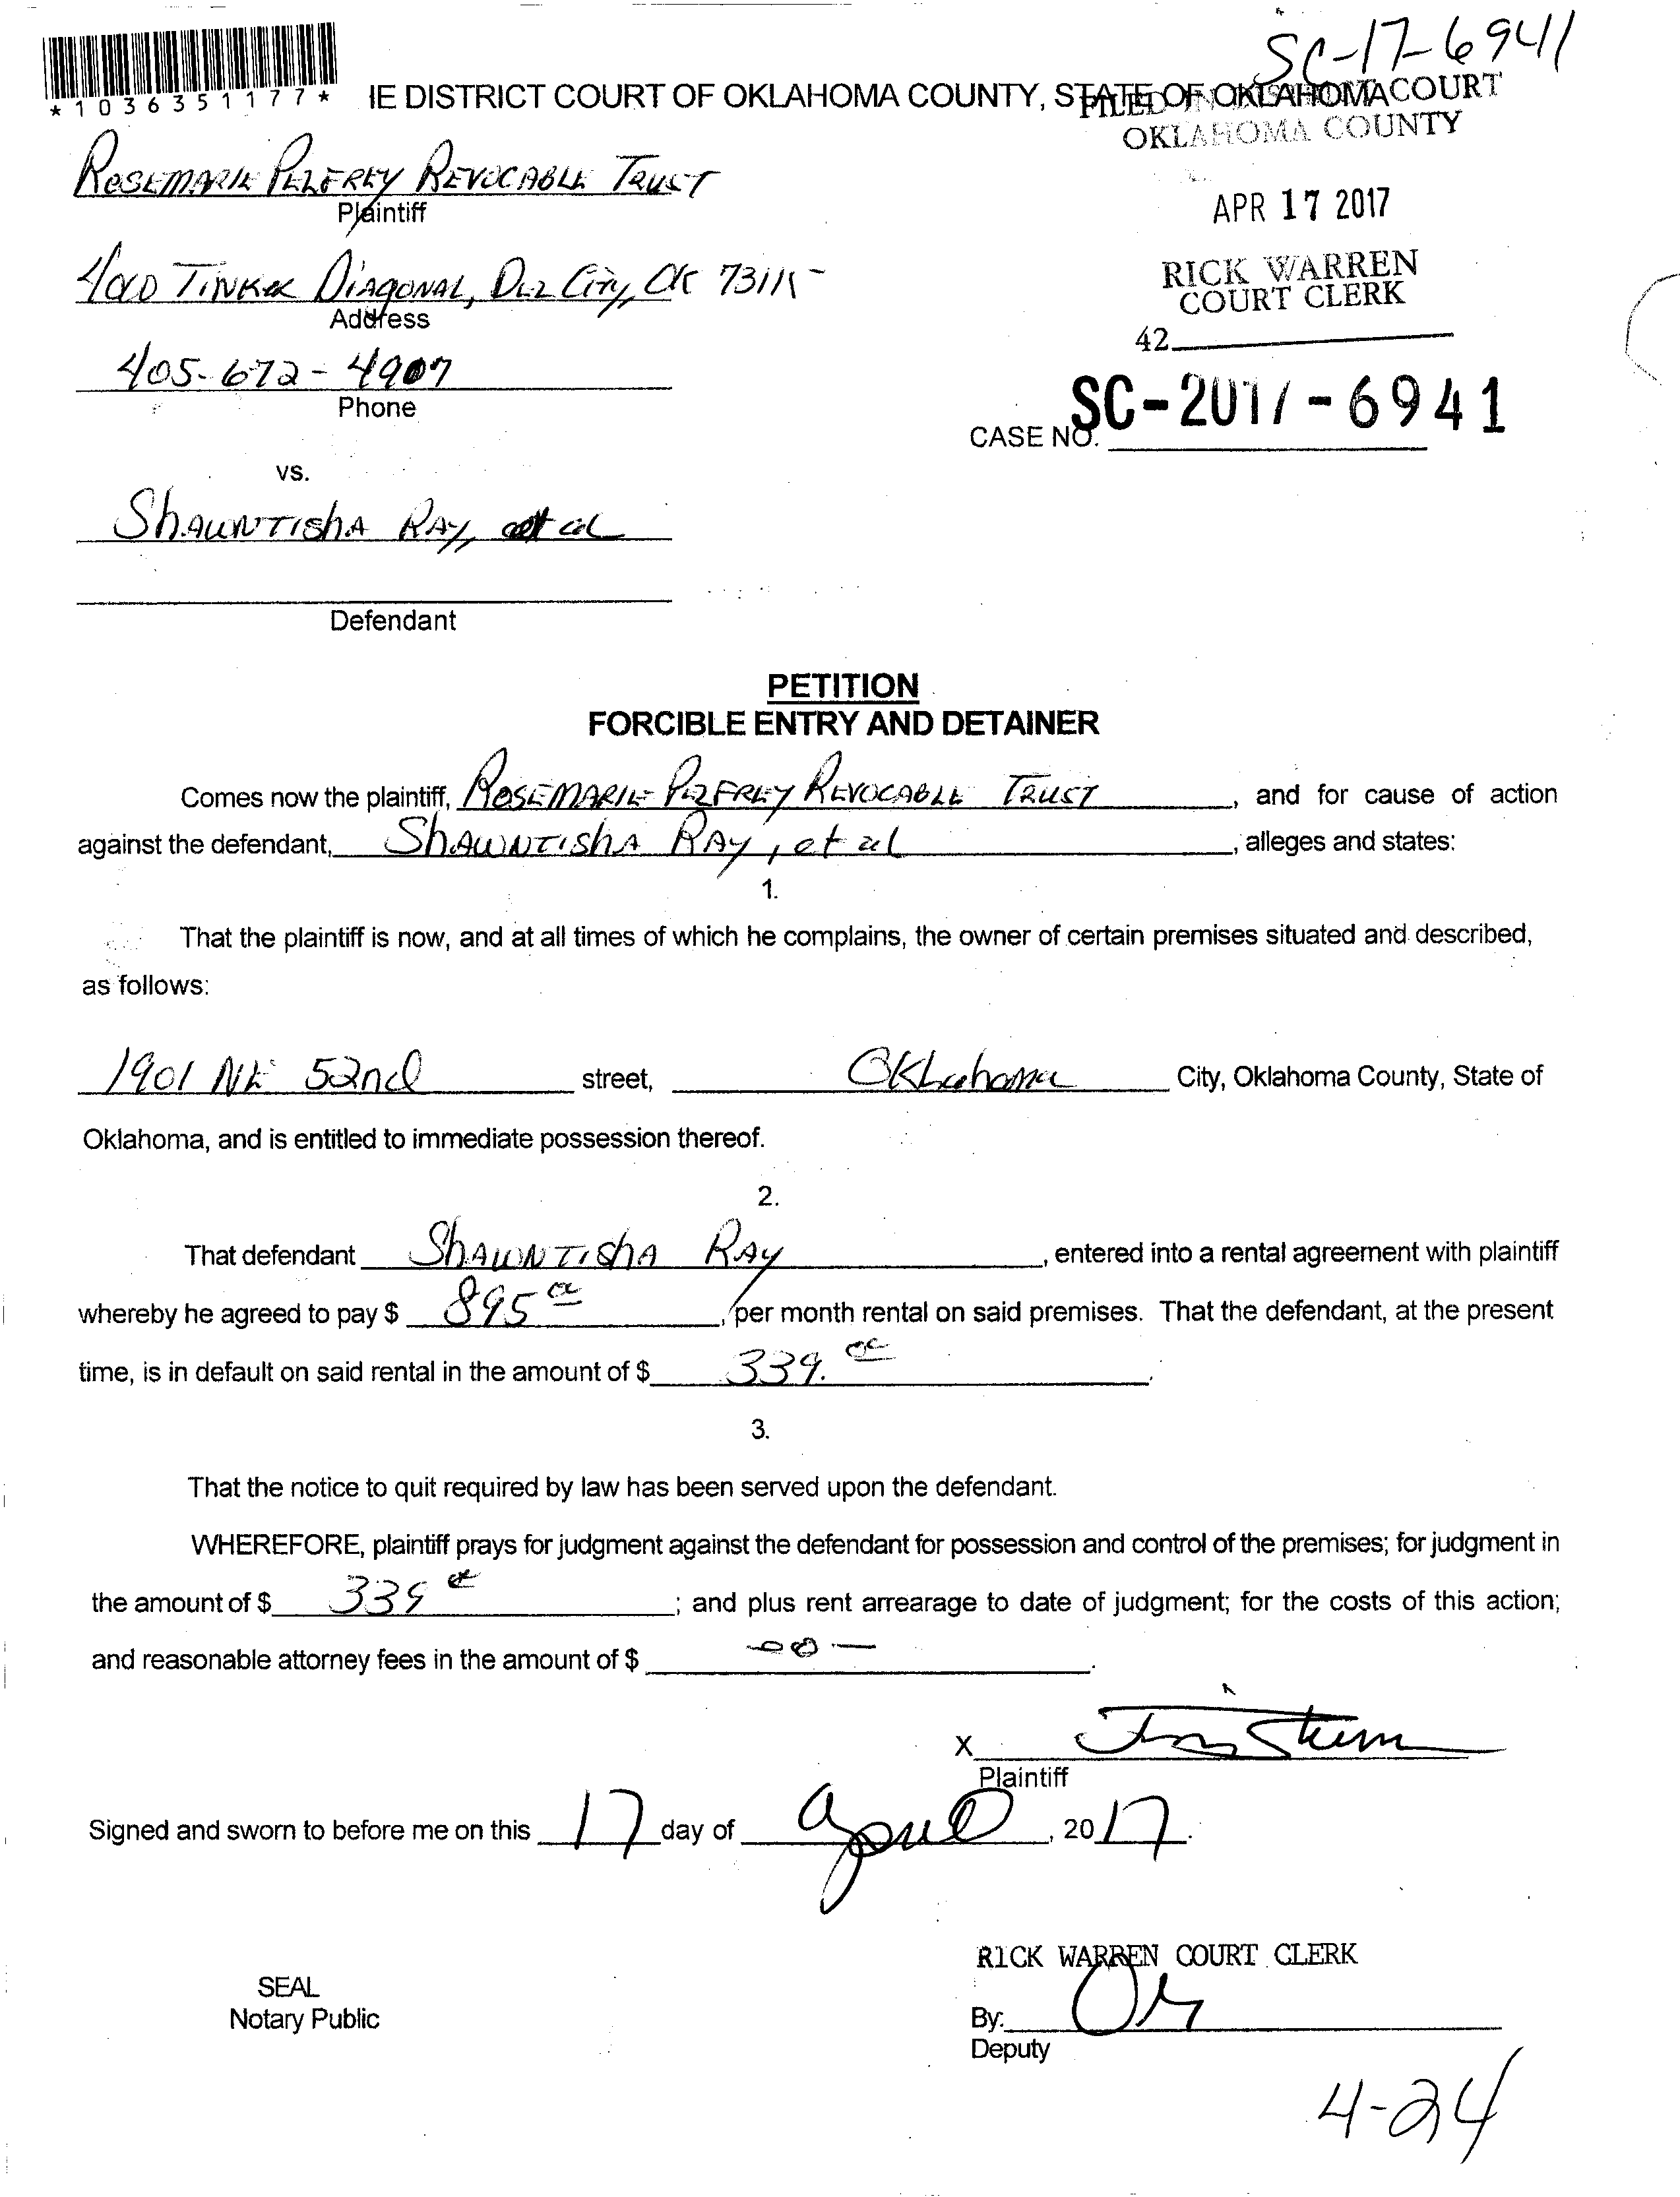 SC-17-6941
*1036351177* IE DISTRICT COURT OF OKLAHOMA COUNTY, STATE OF OKLAHOMA
FILED IN COURT
OKLAHOMA COUNTY
ROSEMARIE PELFREY REVOCABLE TRUST
Plaintiff
APR 17 2017
TINKER DIAGONAL, DEL CITY, OK 73115
Address
RICK WARREN
COURT CLERK
42
405-672-4907
Phone
CASE NO. SC-2017-6941
vs.
SHAUNTISHA RAY, et al
Defendant
PETITION
FORCIBLE ENTRY AND DETAINER
Comes now the plaintiff, ROSEMARIE PELFREY REVOCABLE TRUST, and for cause of action
against the defendant, SHAUNTISHA RAY, et al, alleges and states:
1.
That the plaintiff is now, and at all times of which he complains, the owner of certain premises situated and described,
as follows:
1901 NE 52nd street, Oklahoma City, Oklahoma County, State of
Oklahoma, and is entitled to immediate possession thereof.
2.
That defendant SHAUNTISHA RAY, entered into a rental agreement with plaintiff
whereby he agreed to pay $ 895 00, per month rental on said premises. That the defendant, at the present
time, is in default on said rental in the amount of $ 339. 00.
3.
That the notice to quit required by law has been served upon the defendant.
WHEREFORE, plaintiff prays for judgment against the defendant for possession and control of the premises; for judgment in
the amount of $ 339 00; and plus rent arrearage to date of judgment; for the costs of this action;
and reasonable attorney fees in the amount of $ -00-.
X
Plaintiff
Signed and sworn to before me on this 17 day of April, 2017.
RICK WARREN COURT CLERK
SEAL
Notary Public
By:
Deputy
4-24